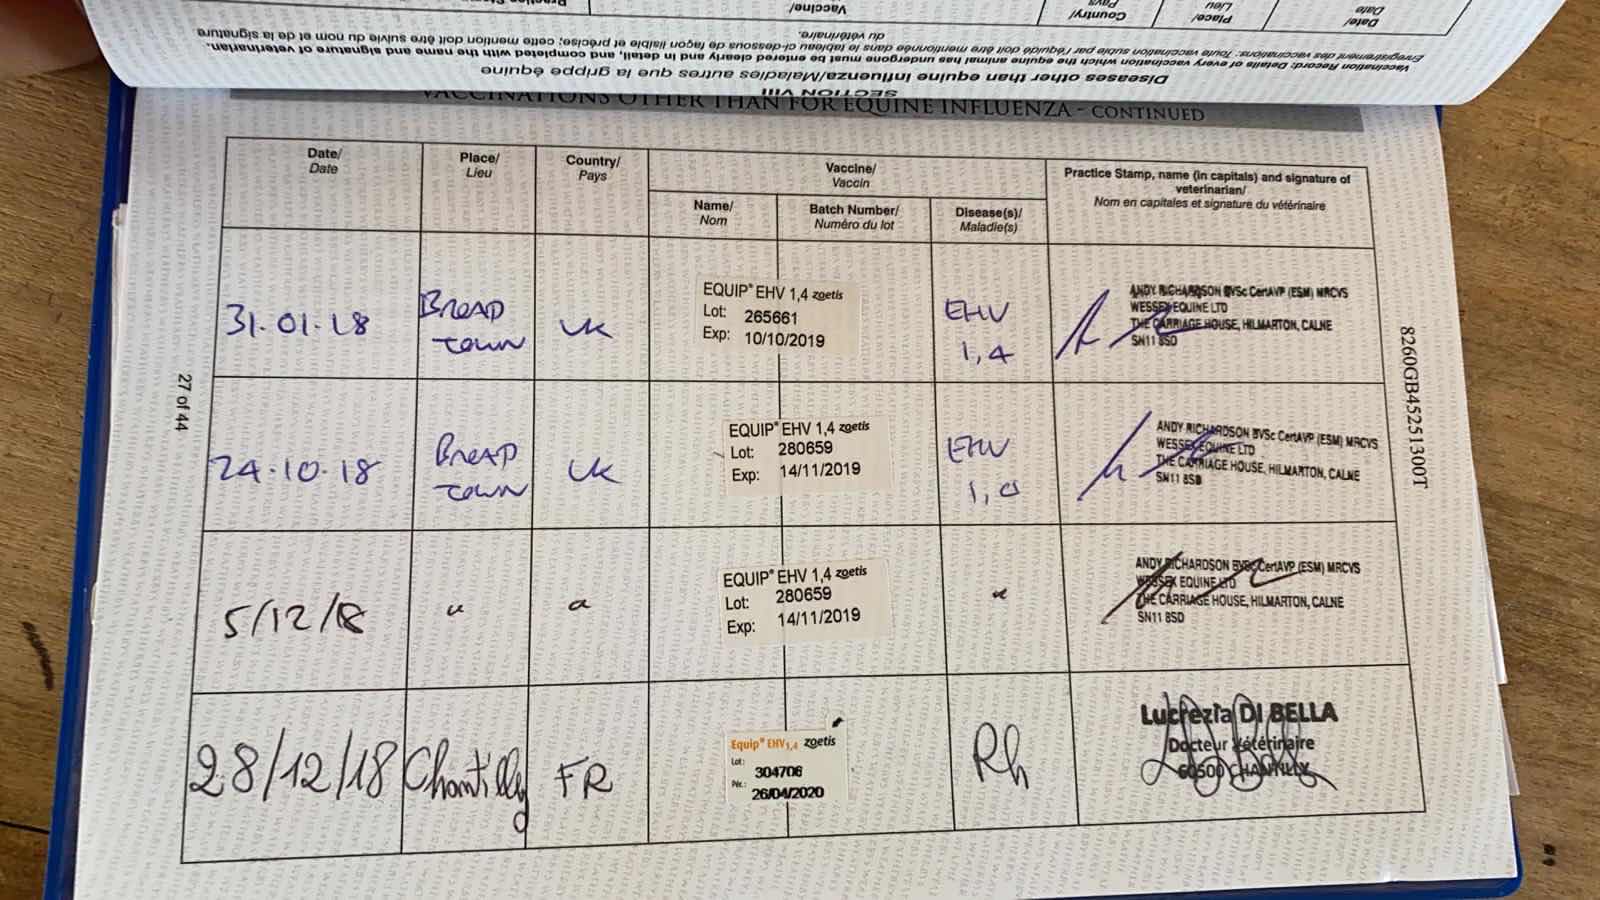 Date/
Date
Place/
Lieu
Country/
Pays
Vaccine/
du vétérinaire.
Enregistrement des vaccinations: Toute vaccination subie par l'équidé doit être mentionnée dans le tableau ci-dessous de façon lisible et précise; cette mention doit être suivie du nom et de la signature
Vaccination Record: Details of every vaccination which the equine animal has undergone must be entered clearly and in detail, and completed with the name and signature of veterinarian.
Diseases other than equine influenza/Maladies autres que la grippe équine
SECTION VIII
VACCINATIONS OTHER THAN FOR EQUINE INFLUENZA - CONTINUED
Date/
Date
Place/
Lieu
Country/
Pays
Vaccine/
Vaccin
Name/
Nom
Batch Number/
Numéro du lot
Disease(s)/
Maladie(s)
Practice Stamp, name (in capitals) and signature of
veterinarian/
Nom en capitales et signature du vétérinaire
31.01.18
Broad
town
UK
EQUIP® EHV 1,4 zoetis
Lot: 265661
Exp: 10/10/2019
EHV
1,4
ANDY RICHARDSON BVSc CertAVP (ESM) MRCVS
WESSEX EQUINE LTD
THE CARRIAGE HOUSE, HILMARTON, CALNE
SN11 8SD
24.10.18
Broad
town
UK
EQUIP® EHV 1,4 zoetis
Lot: 280659
Exp: 14/11/2019
EHV
1,4
ANDY RICHARDSON BVSc CertAVP (ESM) MRCVS
WESSEX EQUINE LTD
THE CARRIAGE HOUSE, HILMARTON, CALNE
SN11 8SD
5/12/18
"
"
EQUIP® EHV 1,4 zoetis
Lot: 280659
Exp: 14/11/2019
"
ANDY RICHARDSON BVSc CertAVP (ESM) MRCVS
WESSEX EQUINE LTD
THE CARRIAGE HOUSE, HILMARTON, CALNE
SN11 8SD
28/12/18
Chantilly
FR
Equip® EHV1,4 zoetis
Lot: 304706
Pér.: 26/04/2020
Rh
Lucrezia DI BELLA
Docteur Vétérinaire
60500 CHANTILLY
27 of 44
8260GB45251300T